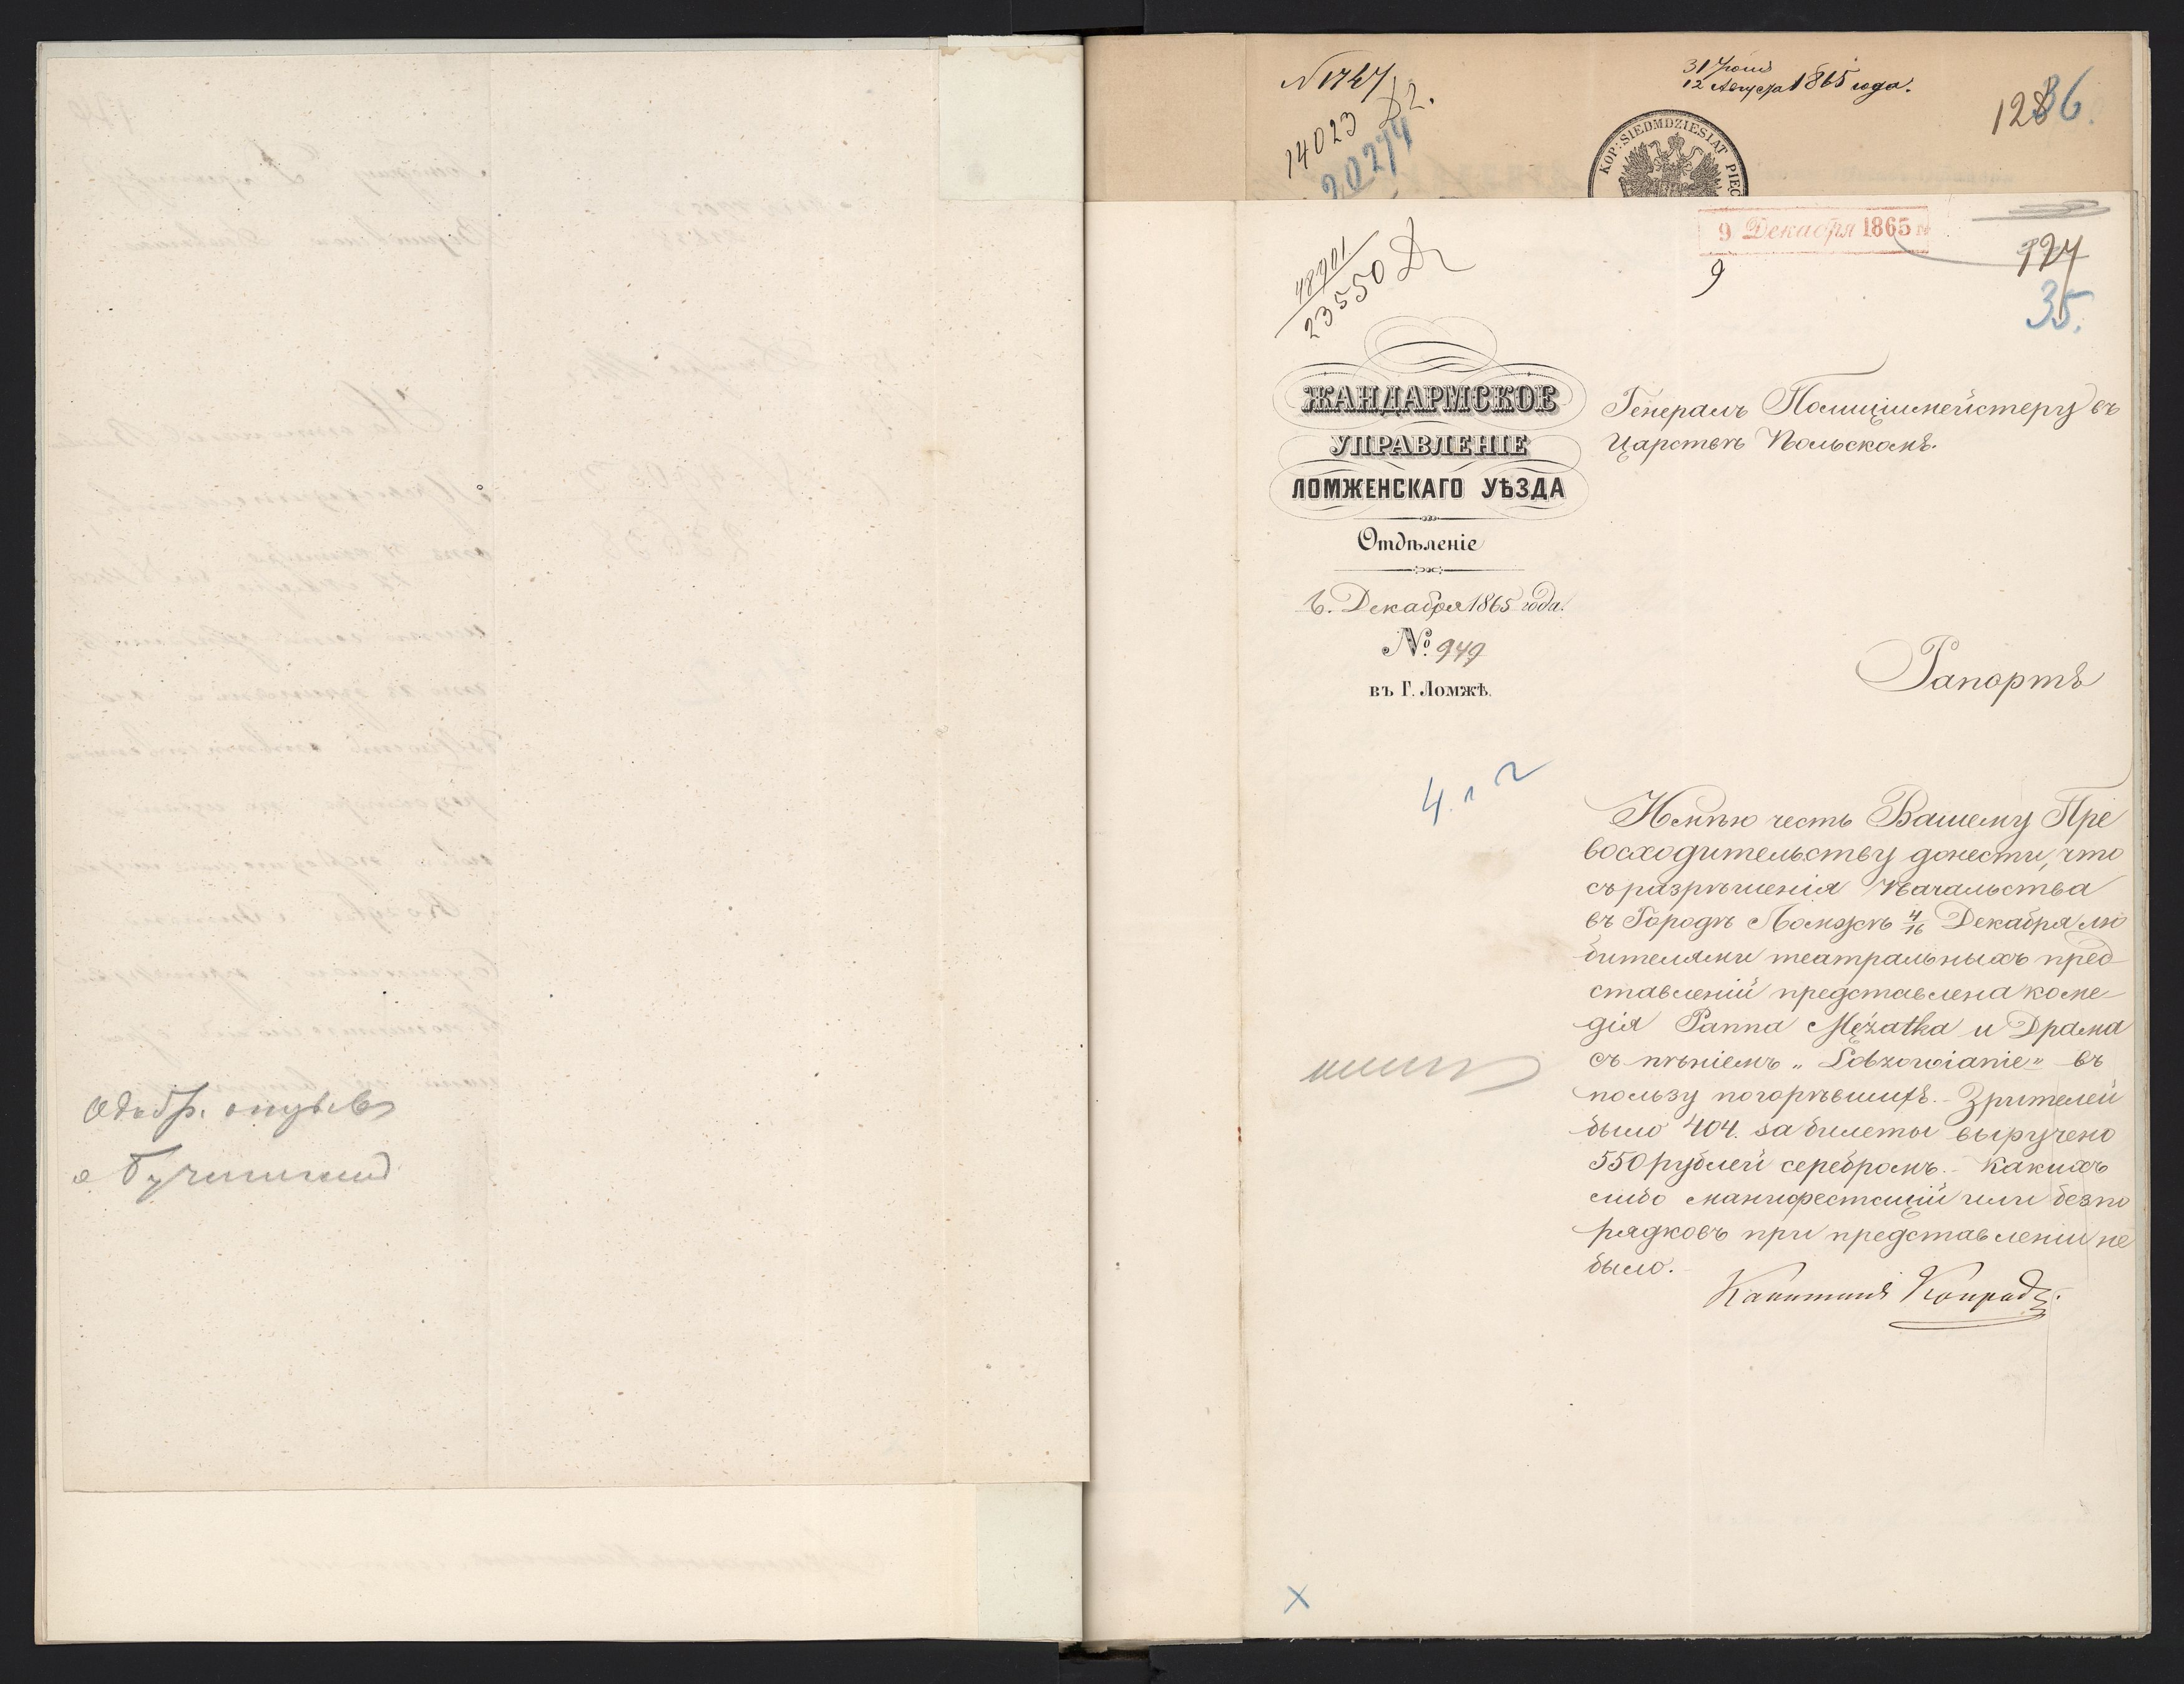 N 1747
14023 Д2.
20274
31 Іюля
12 Августа 1865 года.
128
36.
KOP: SIEDMDZIESIAT PIĘĆ
9 Декабря 1865
9
127
35.
48901
23550
ЖАНДАРМСКОЕ
УПРАВЛЕНІЕ
ЛОМЖЕНСКАГО УѢЗДА
Отдѣленіе
6. Декабря 1865 года.
№ 949
въ Г. Ломжѣ.
Генералъ Полиціймейстеру въ
Царствѣ Польскомъ.
Рапортъ
Имѣю честь Вашему Пре
восходительству донести, что
съ разрѣшенія Начальства
въ Городѣ Ломжѣ 4/16 Декабря лю
бителями театральныхъ пред
ставленій представлена коме-
дія Panna Mężatka и Драма
съ пѣніемъ „Łobzowianie“ въ
пользу погорѣвшихъ. Зрителей
было 404. за билеты выручено
550 рублей серебромъ. Какихъ
либо манифестацій или безпо
рядковъ при представленіи не
было.
Капитанъ Конрадъ.